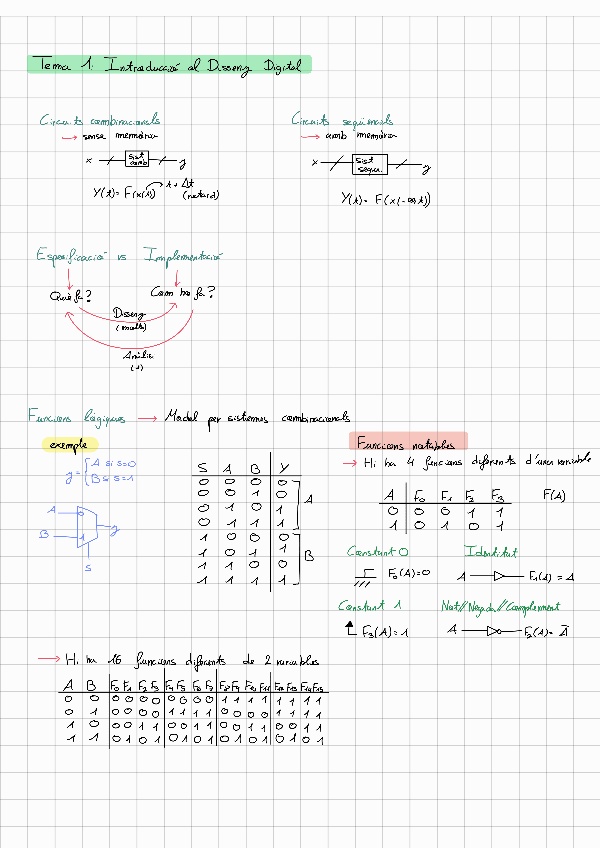 Tema 1. Introducció al Disseny Digital
Circuits combinacionals
→ sense memòria
x sist comb y
Y(t) = F(x(t)) t + Δt
(retard)
Circuits seqüencials
→ amb memòria
x sist seqü. y
Y(t) = F(x(-∞,t))
Especificació vs Implementació
Què fa? Com ho fa?
Disseny
(molts)
Anàlisi
(1)
Funcions lògiques → Model per sistemes combinacionals
exemple
y = { A si s=0
B si s=1
A 0
B 1 y
s
S A B Y
0 0 0 0
0 0 1 0
0 1 0 1
0 1 1 1
A
1 0 0 0
1 0 1 1
1 1 0 0
1 1 1 1
B
Funcions notables
→ Hi ha 4 funcions diferents d'una variable
A F₀ F₁ F₂ F₃ F(A)
0 0 0 1 1
1 0 1 0 1
Constant 0 Identitat
F₀(A)=0 A F₁(A) = A
Constant 1 Not//Negada//Complement
F₃(A)=1 A F₂(A)= Ā
→ Hi ha 16 funcions diferents de 2 variables
A B F₀ F₁ F₂ F₃ F₄ F₅ F₆ F₇ F₈ F₉ F₁₀ F₁₁ F₁₂ F₁₃ F₁₄ F₁₅
0 0 0 0 0 0 0 0 0 0 1 1 1 1 1 1 1 1
0 1 0 0 0 0 1 1 1 1 0 0 0 0 1 1 1 1
1 0 0 0 1 1 0 0 1 1 0 0 1 1 0 0 1 1
1 1 0 1 0 1 0 1 0 1 0 1 0 1 0 1 0 1